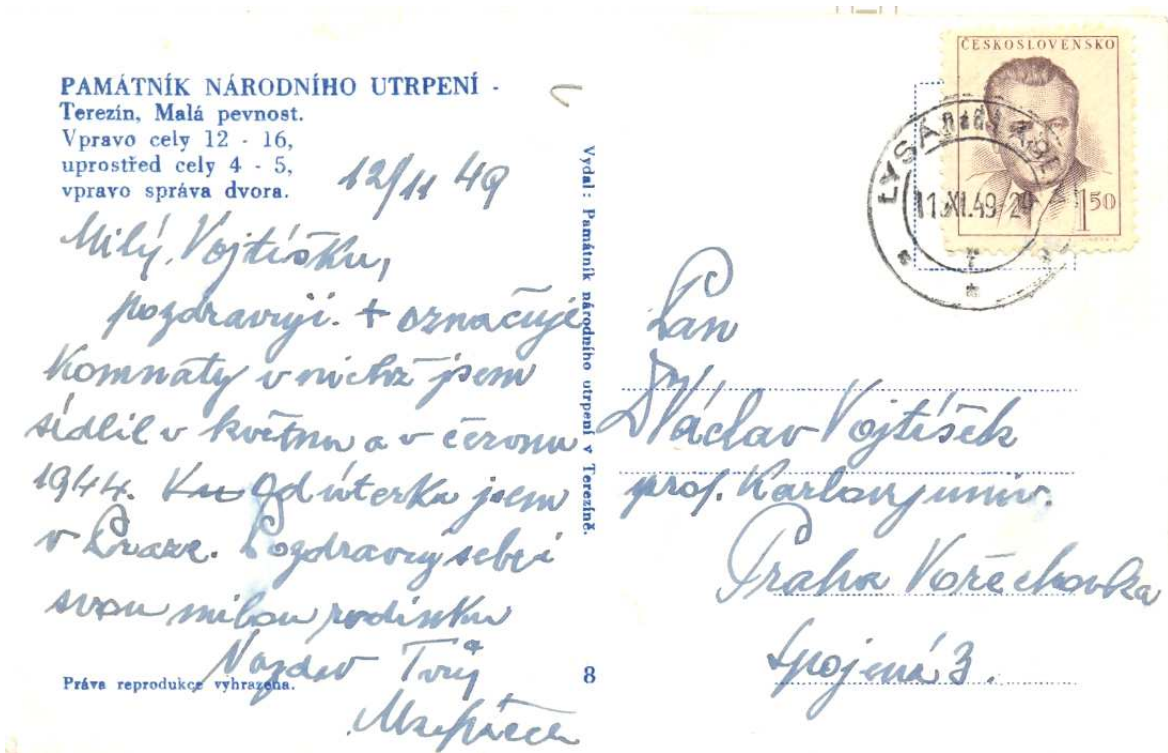 PAMÁTNÍK NÁRODNÍHO UTRPENÍ -
Terezín, Malá pevnost.
Vpravo cely 12 - 16,
uprostřed cely 4 - 5,
vpravo správa dvora.
12/11 49
Milý Vojtíšku,
pozdravuji. + označuje
Komnaty v nichž jsem
sídlil v květnu a v červnu
1944. Od úterka jsem
v Praze. Pozdravuj sebe i
svou milou rodinku
Nazdar Tvůj
Práva reprodukce vyhrazena.
Vydal: Památník národního utrpení v Terezíně.
8
ČESKOSLOVENSKO
1 50
LYSÁ nad
XI.49
Pan
Dr Václav Vojtíšek
prof. Karlovy univ.
Praha Kořechovka
Spojená 3.